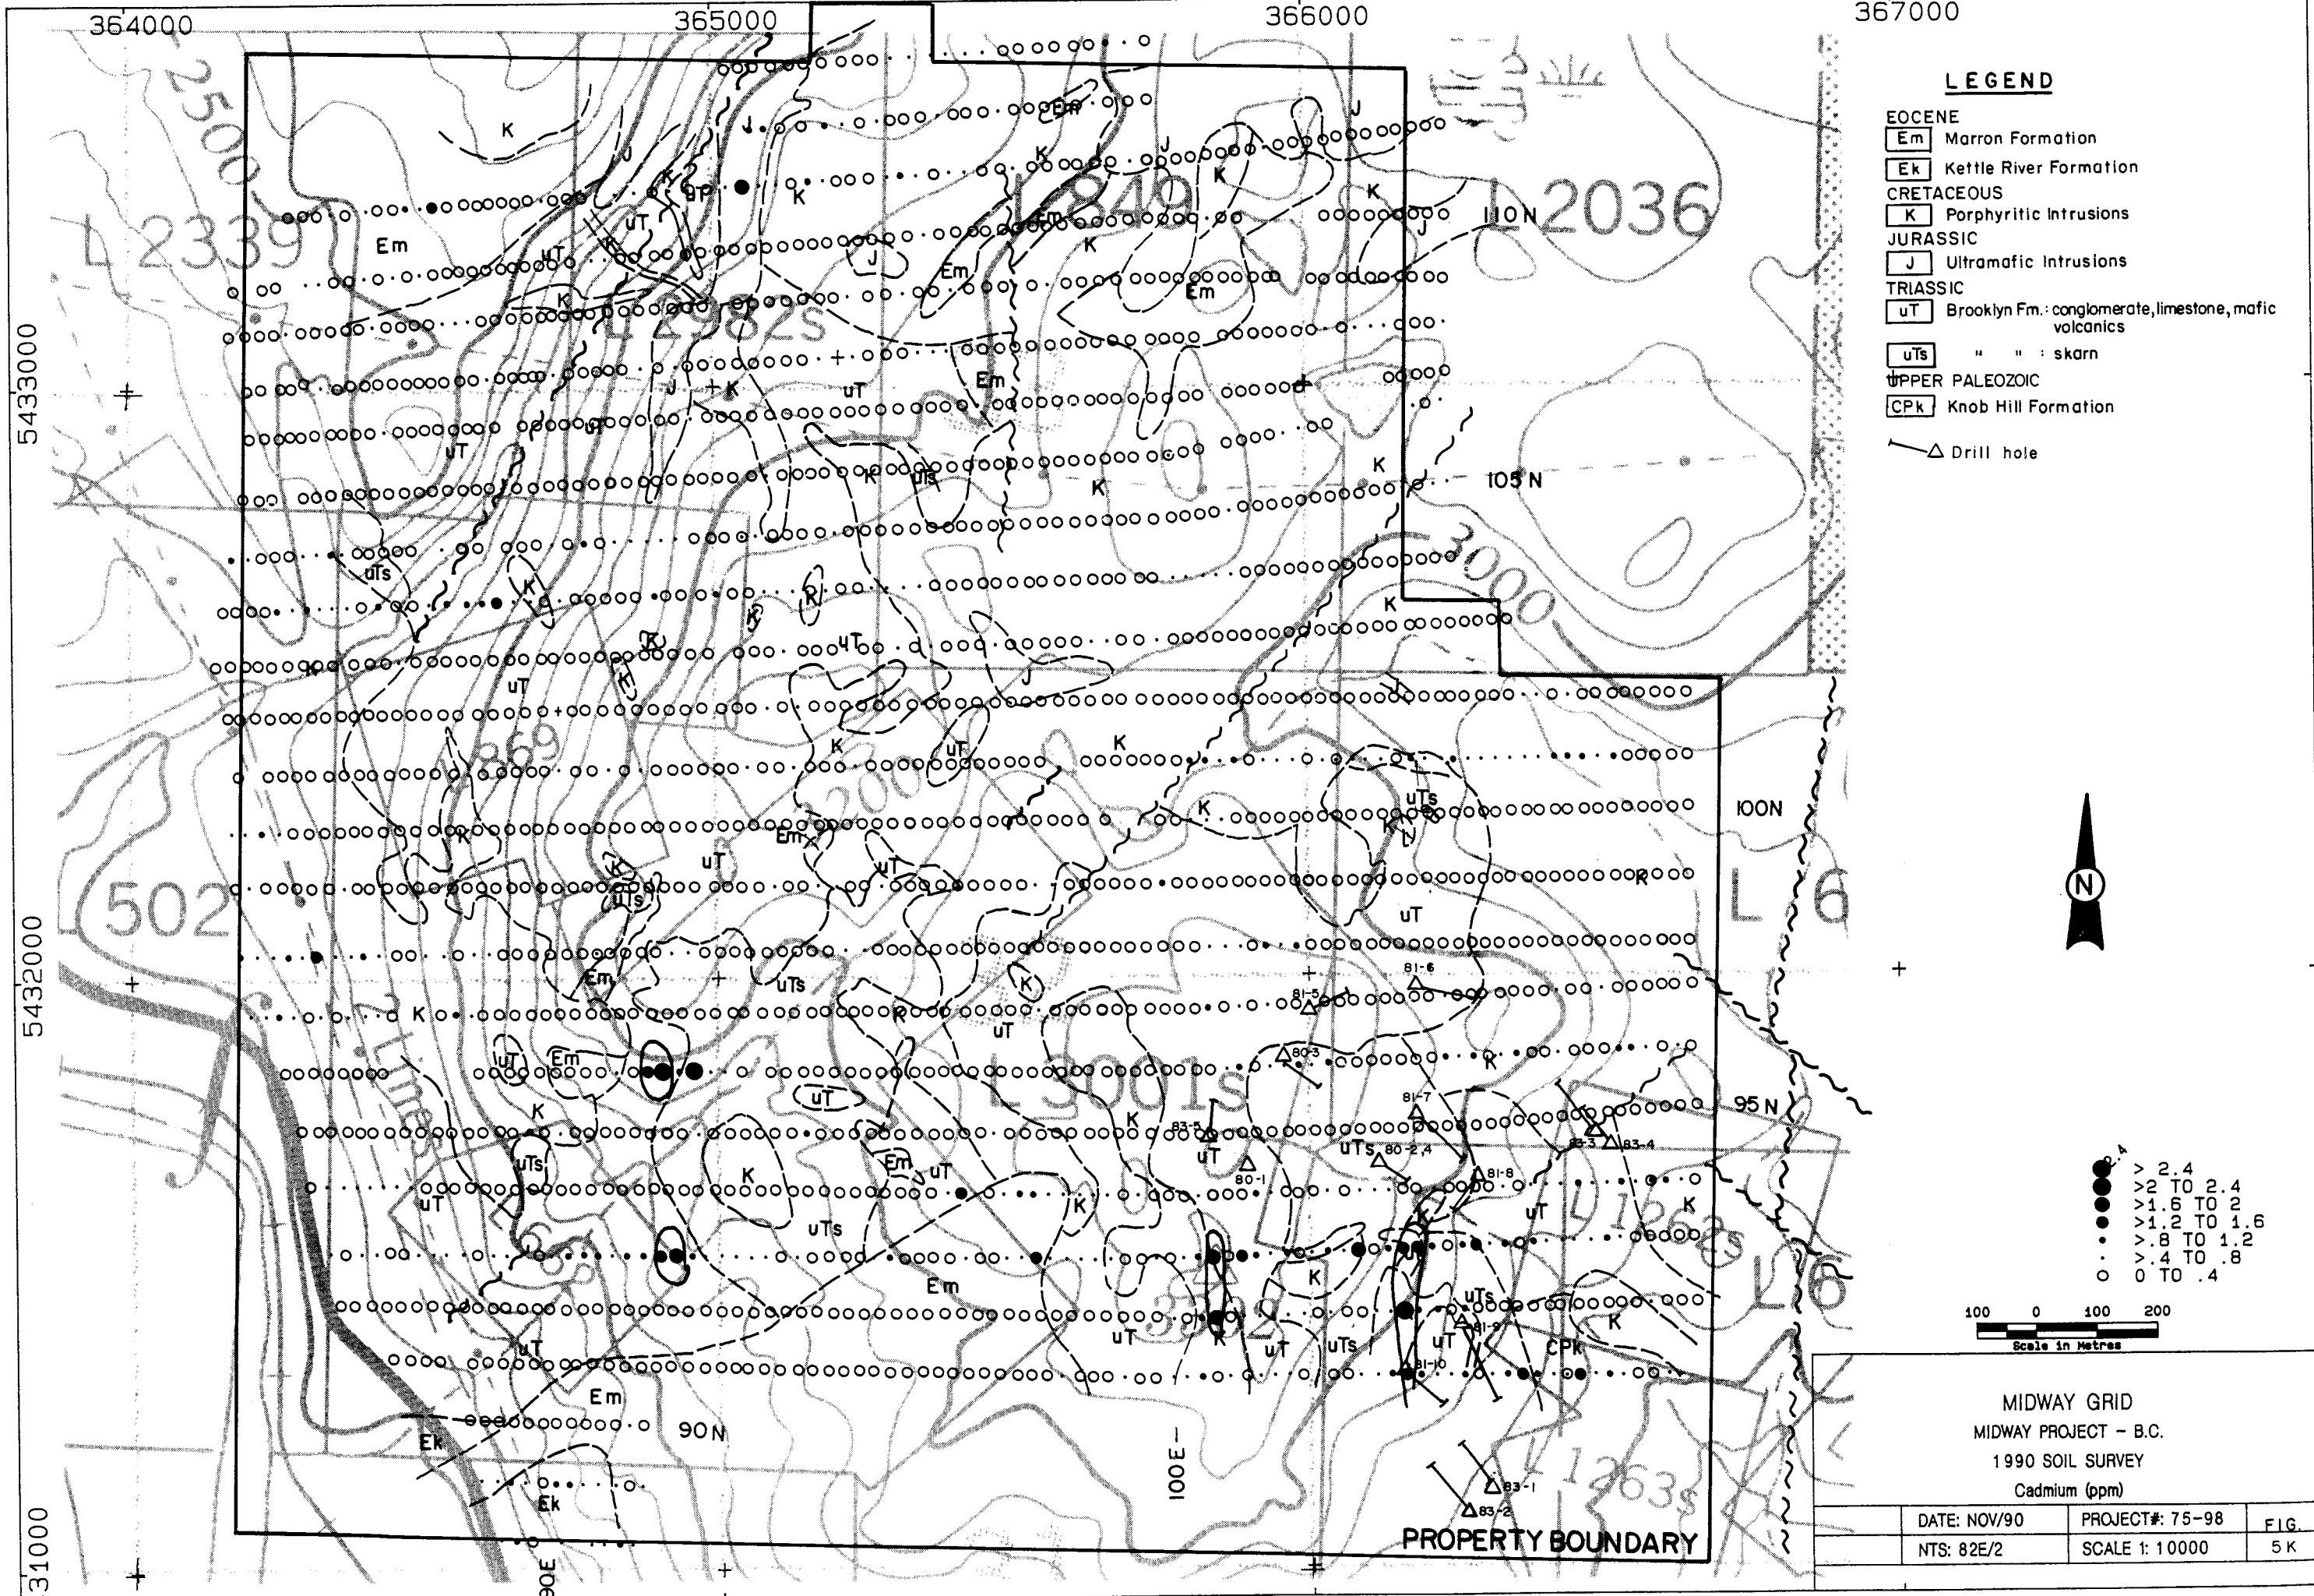 364000
365000
366000
367000
5433000
5432000
31000
L 2339
L 849
L 2036
L 2982s
L 3001s
L 1263s
L 1263s
502
2500
3000
3200
869
2 Lines
3392
L 6
L 6
110N
105N
100N
95N
90N
100E
90E
Em
K
J
uT
uTs
CPk
Ek
81-6
81-5
80-3
81-7
83-5
80-1
80-2,4
81-8
83-3
83-4
81-9
81-10
83-1
83-2
PROPERTY BOUNDARY
LEGEND
EOCENE
Em Marron Formation
Ek Kettle River Formation
CRETACEOUS
K Porphyritic Intrusions
JURASSIC
J Ultramafic Intrusions
TRIASSIC
uT Brooklyn Fm.: conglomerate, limestone, mafic
volcanics
uTs " " : skarn
UPPER PALEOZOIC
CPk Knob Hill Formation
Drill hole
N
2.4
> 2.4
>2 TO 2.4
>1.6 TO 2
>1.2 TO 1.6
>.8 TO 1.2
>.4 TO .8
0 TO .4
100 0 100 200
Scale in Metres
MIDWAY GRID
MIDWAY PROJECT - B.C.
1990 SOIL SURVEY
Cadmium (ppm)
DATE: NOV/90 PROJECT#: 75-98 FIG.
NTS: 82E/2 SCALE 1: 10000 5K